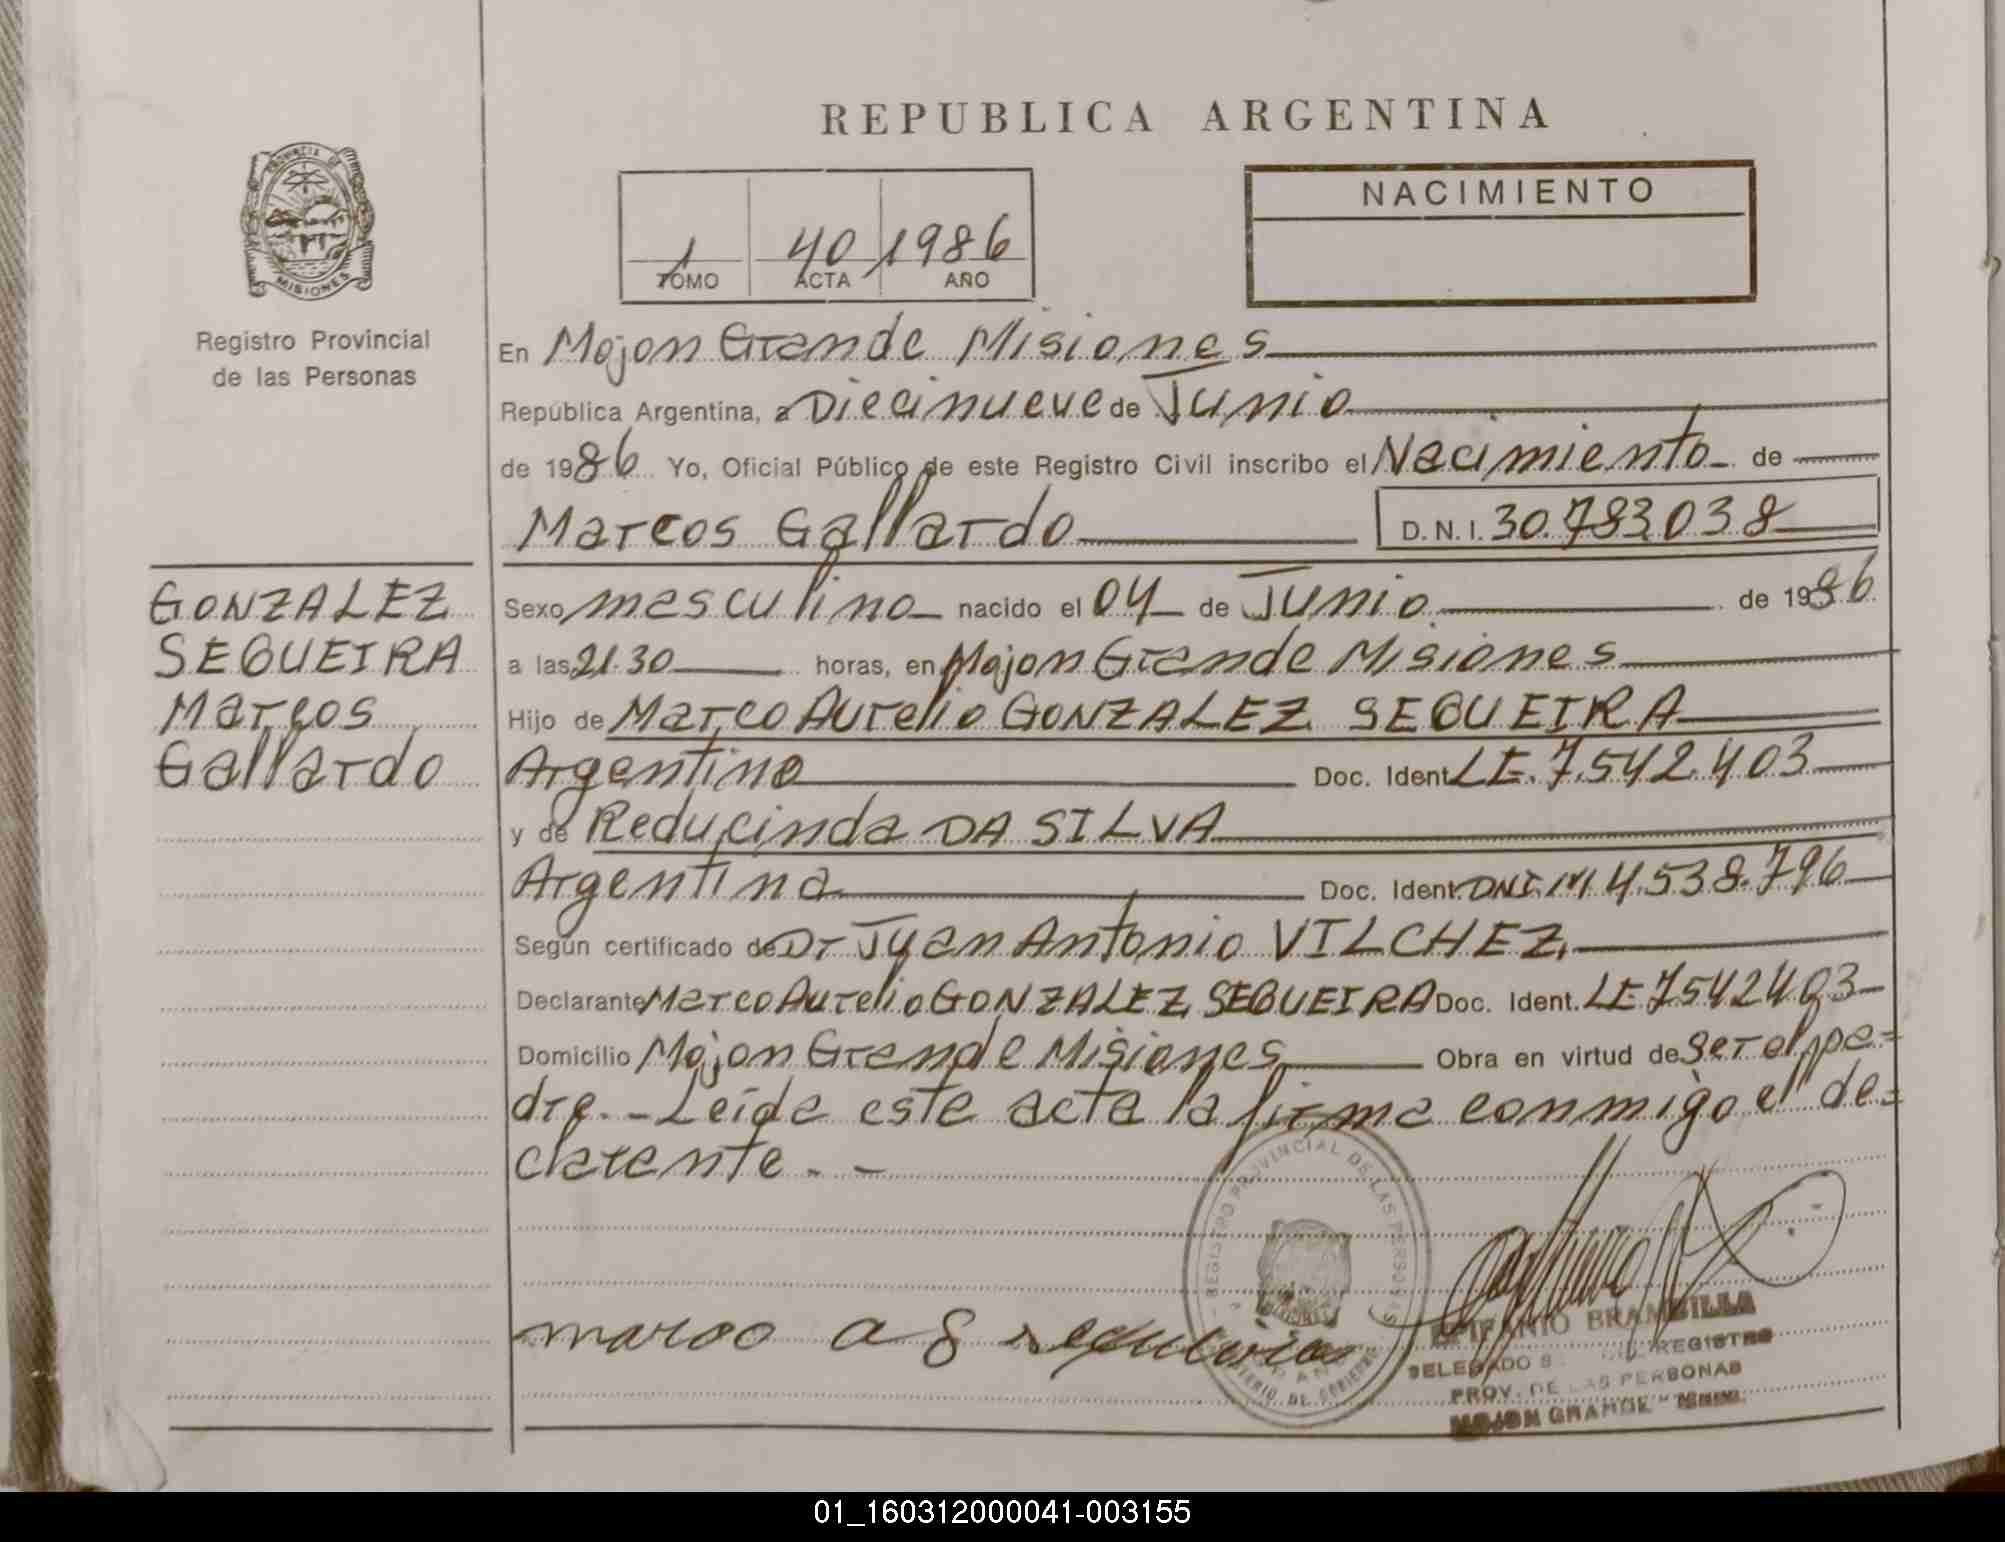 REPUBLICA ARGENTINA
PROVINCIA DE
MISIONES
Registro Provincial
de las Personas
1 40 1986
TOMO ACTA AÑO
NACIMIENTO
En Mojon Grande Misiones
República Argentina, a Diecinueve de Junio
de 1986 Yo, Oficial Público de este Registro Civil inscribo el Nacimiento de
Marcos Gallardo D.N.I. 30.783.038
GONZALEZ
SEQUEIRA
Marcos
Gallardo
Sexo masculino nacido el 04 de Junio de 1986
a las 21.30 horas, en Mojon Grande Misiones
Hijo de Marco Aurelio GONZALEZ SEQUEIRA
Argentino Doc. Ident. LE. 7.542.403
y de Reducinda DA SILVA
Argentina Doc. Ident. DNI. M 4.538.796
Según certificado de Dr Juan Antonio VILCHEZ.
Declarante Marco Aurelio GONZALEZ SEQUEIRA Doc. Ident. LE 7542403
Domicilio Mojon Grande Misiones Obra en virtud de ser el pa=
dre. - Leída este acta la firma conmigo el de=
clarante. -
REGISTRO PROVINCIAL DE LAS PERSONAS
DE GOBIERNO
marco a g sequeira
EPIFANIO BRAMBILLA
DELEGADO REGISTRO
PROV. DE LAS PERSONAS
MOJON GRANDE - Mnes.
01_160312000041-003155